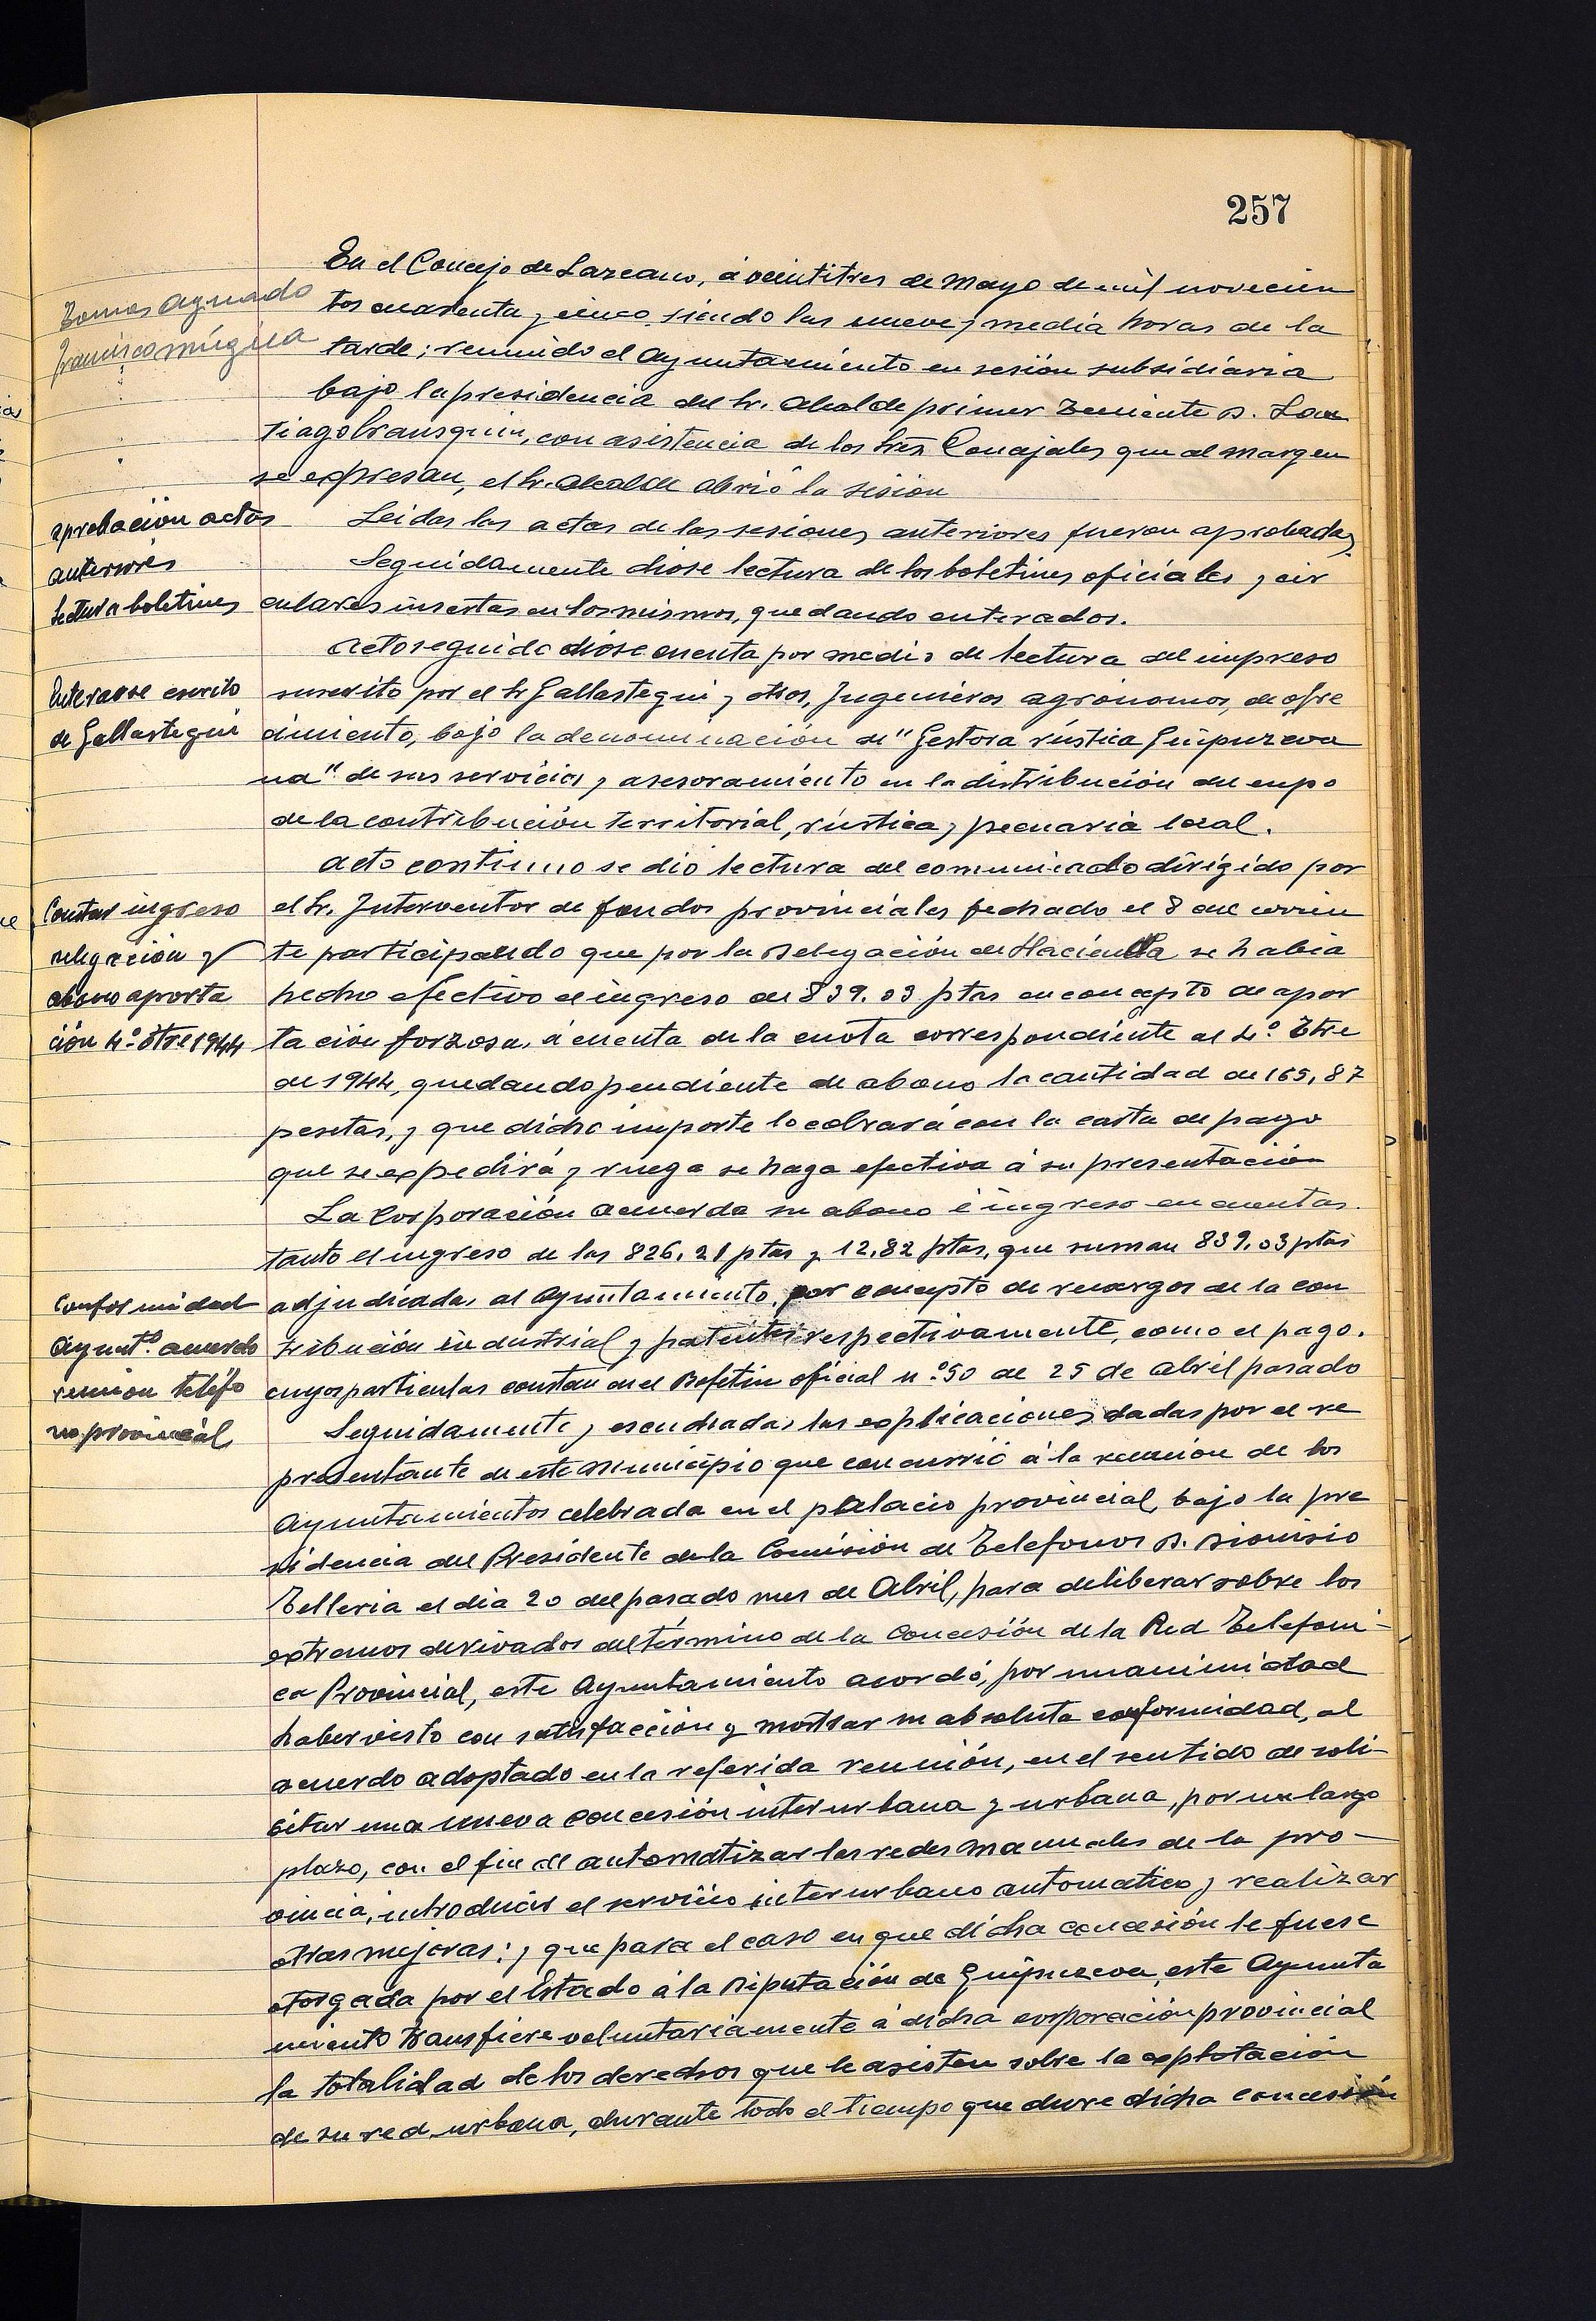 257
En el Concejo de Lazcano, á veintitres de Mayo de mil novecien
tos cuarenta y cinco, siendo las nueve y media horas de la
tarde; reunido el Ayuntamiento en sesión subsidiaria
bajo la presidencia del Sr. Alcalde primer Teniente D. San
tiago Uransquin, con asistencia de los Sres Concejales que al margen
se expresan, el Sr. Alcalde abrió la sesión
Tomas Aguado
Francisco Múgica
aprobación actas
anteriores
Leidas las actas de las sesiones anteriores fueron aprobadas
Lectura boletines
Seguidamente dióse lectura de los boletines oficiales y cir
culares insertas en los mismos, quedando enterados.
Enterarse escrito
de Gallastegui
Acto seguido dióse cuenta por medio de lectura del impreso
suscrito por el Sr Gallastegui y otros, Ingenieros agrónomos, de ofre
cimiento, bajo la denominación de "Gestora rústica Guipuzcoa
na" de sus servicios y asesoramiento en la distribución del cupo
de la contribución territorial, rústica y pecuaria local.
Constar ingreso
delegación y
abono aporta
ción 4º Etre 1944
Acto continuo se dió lectura del comunicado dirigido por
el Sr. Interventor de fondos provinciales fechado el 8 del corrien
te participando que por la Delegación de Hacienda se habia
hecho efectivo el ingreso de 839.03 ptas en concepto de apor
tación forzosa, á cuenta de la cuota correspondiente al 4º Etre
de 1944, quedando pendiente de abono la cantidad de 165,87
pesetas, y que dicho importe lo cobrará con la carta de pago
que se expedirá y ruega se haga efectiva á su presentación
La Corporación acuerda su abono é ingreso en cuentas
tanto el ingreso de las 826.21 ptas y 12.82 ptas, que suman 839.03 ptas
adjudicadas al Ayuntamiento, por concepto de recargos de la con
tribución industrial y patentes respectivamente, como el pago.
cuyos particulas constan en el Boletin oficial nº 50 de 25 de Abril pasado
Conformidad
Ayuntº acuerdo
reunion teléfo
no provincial
Seguidamente y escuchadas las explicaciones dadas por el re
presentante de este Municipio que concurrió á la reunion de los
Ayuntamientos celebrada en el palacio provincial, bajo la pre
sidencia del Presidente de la Comisión de Telefonos D. Dionisio
Telleria el dia 20 del pasado mes de Abril, para deliberar sobre los
extremos derivados del término de la Concesión de la Red Telefoni-
ca Provincial, este Ayuntamiento acordó, por unanimidad
haber visto con satisfacción y mostrar su absoluta conformidad, al
acuerdo adoptado en la referida reunión, en el sentido de soli-
citar una nueva concesión interurbana y urbana, por un largo
plazo, con el fin de automatizar las redes manuales de la pro-
vincia, introducir el servicio interurbano automatico y realizar
otras mejoras; y que para el caso en que dicha concesión le fuese
otorgada por el Estado á la Diputación de Guipuzcoa, este Ayunta
miento transfiere voluntariamente á dicha corporación provincial
la totalidad de los derechos que le asisten sobre la explotación
de su red urbana, durante todo el tiempo que dure dicha concesión